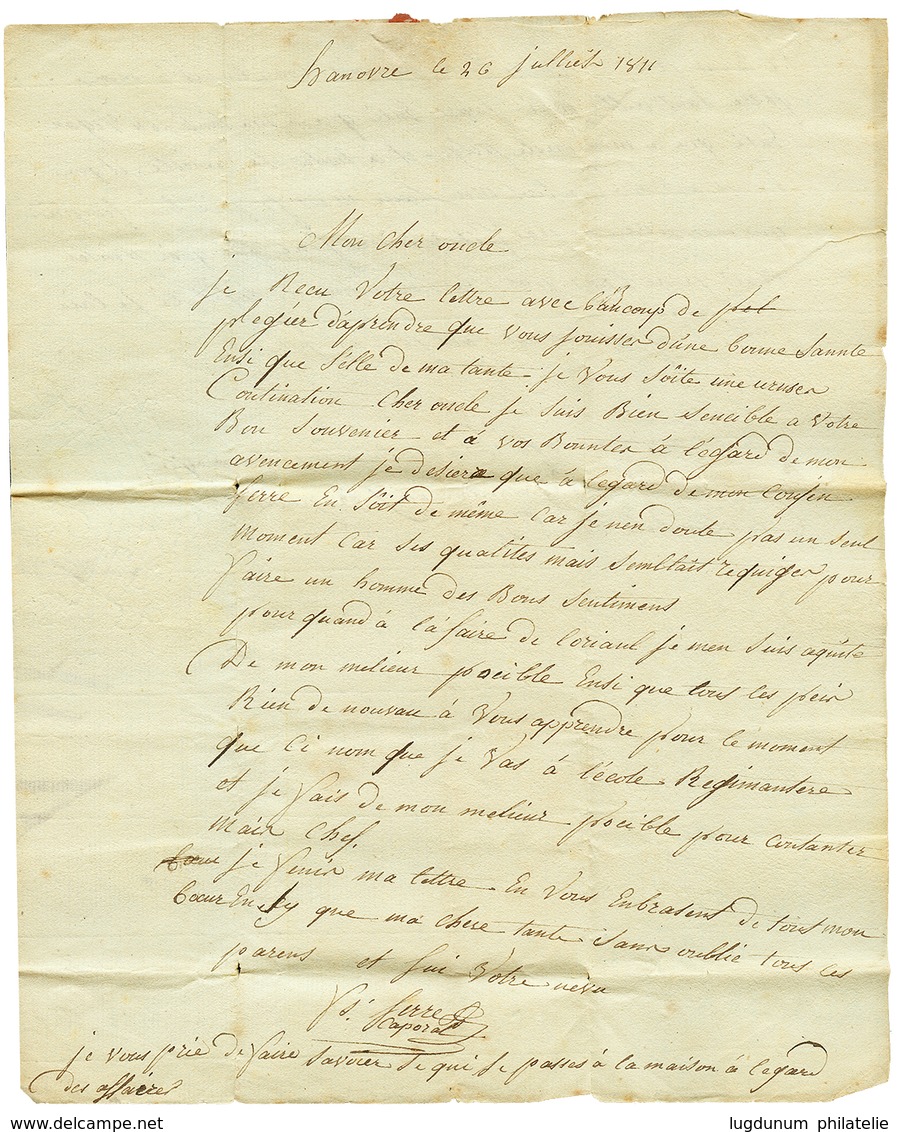 hanovre le 26 julliet 1811
Mon cher oncle
je Recu Votre lettre avec baucoup de
plegier daprendre que vous jouisser d'une bonne Sannte
Ensi que Selle de ma tante je Vous Soite une
Contination Cher oncle je suis Bien Sencible a Votre
Bon Souvenier et a vos Bountes à l'egard de mon
avencement je desiera que à legard de mon Cousin
ferre En Soit de même Car je nen doute pas un seul
moment Car Ses qualites mais Semltait requiger pour
faire un homme des Bons Sentimens
pour quand à la faire de loriaul je men suis aquite
De mon melieur pocible Ensi que tous les peir
Rien de nouvau à Vous apprendre pour le moment
que Ci nom que je Vas à l'école Regimantere
et je fais de mon melieur pocible pour contanter
mais Chef.
je finis ma lettre En Vous Enbrasent de tout mon
Cœur que ma chere tante Sans oublie tous les
parens et sui Votre nevu
ferre
Caporal
je vous prie de faire Savoier Se qui Se passes à la maison à legard
des affaires
www.delcampe.net
lugdunum philatelie